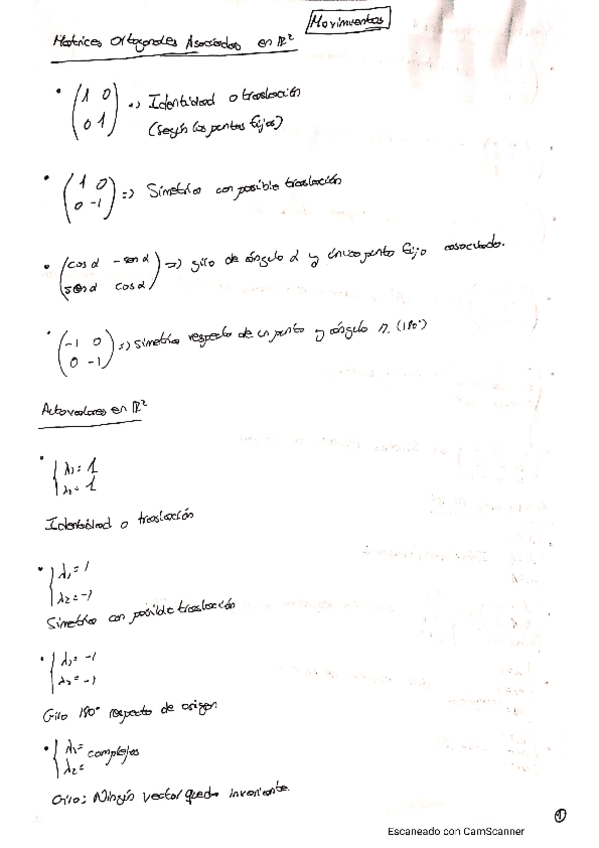 Movimientos
Matrices Ortogonales Asociadas en ℝ²
• (1 0 / 0 1) => Identidad o traslación
(según los puntos fijos)
• (1 0 / 0 -1) => Simetría con posible traslación
• (cos α - sen α / sen α cos α) => giro de ángulo α y único punto fijo asociado.
• (-1 0 / 0 -1) => simetría respecto de un punto y ángulo π. (180°)
Autovalores en ℝ²
• { λ₁ = 1
λ₂ = 1
Identidad o traslación
• { λ₁ = 1
λ₂ = -1
Simetría con posible traslación
• { λ₁ = -1
λ₂ = -1
Giro 180° respecto de origen
• { λ₁ = complejos
λ₂ =
Giro: Ningún vector queda invariante.
1
Escaneado con CamScanner